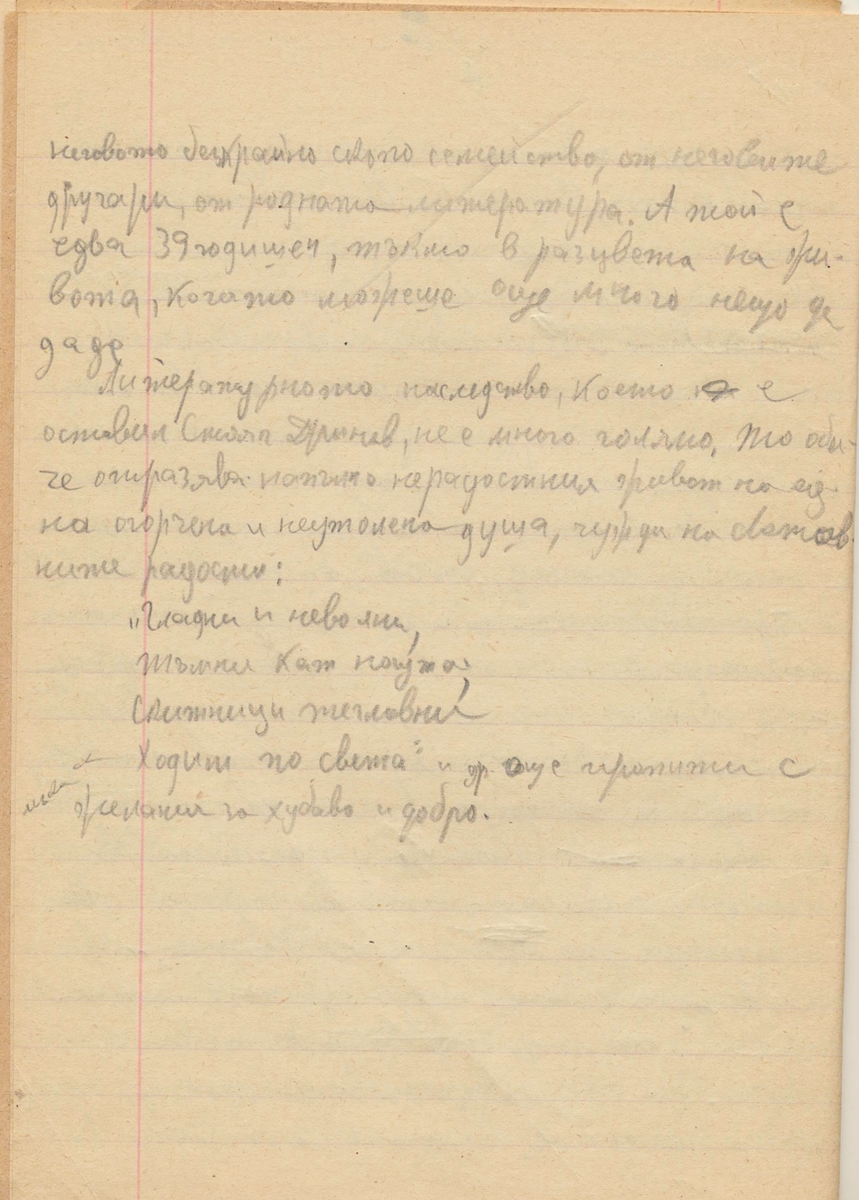 неговото безкрайно скъпо семейство, от неговите
другари, от родната литература. А той е
едва 39 годишен, тъкмо в разцвета на жи-
вота, когато можеше още много нещо да
даде
Литературното наследство, което е
оставил Стоян Дринов, не е много голямо, то оба-
че отразява напълно нерадостния живот на ед-
на огорчена и неутолена душа, чужда на светов-
ните радости:
„Гладни и неволни,
тъмни кат нощта,
скитници тегловни
Ходим по света" и др. още пропити с
желания за хубаво и добро.